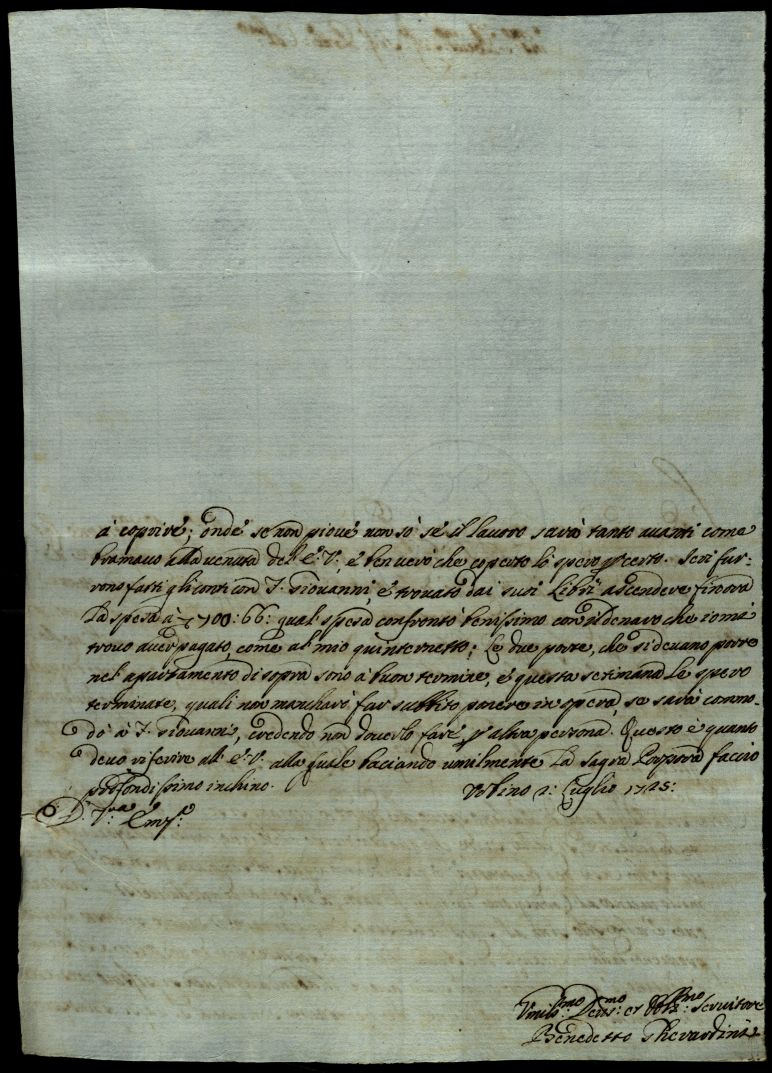 à coprire; onde se non piove non sò se il lavoro sarà tanto avanti come
bramavo alla venuta dell' E: V:, è ben vero che coperto lo spero p certo. Ieri fur-
rono fatti gli conti con S. Giovanni, è trovato dai suoi Libri ascendere finora
la spesa à 700: 66: qual spesa confrontò benissimo con il denaro che io mà
trovo aver pagato, come al mio quinternetto; Le due porte, che si devano porre
nel apartamento di sopra sono à buon termine, è questa settimana le spero
terminate, quali non mancharò far subbito ponere in opera, se sarà commo-
do à S. Giovanni, credendo non doverlo fare p altra persona. Questo è quanto
devo riferire all' E: V: alla quale baciando umilmente la Sagra Porpora faccio
profondissimo inchino. Urbino 2: Luglio 1725:
D: V:ra Em:
Umilis:mo Devs:mo et Obb:mo Servitore
Benedetto Gherardini